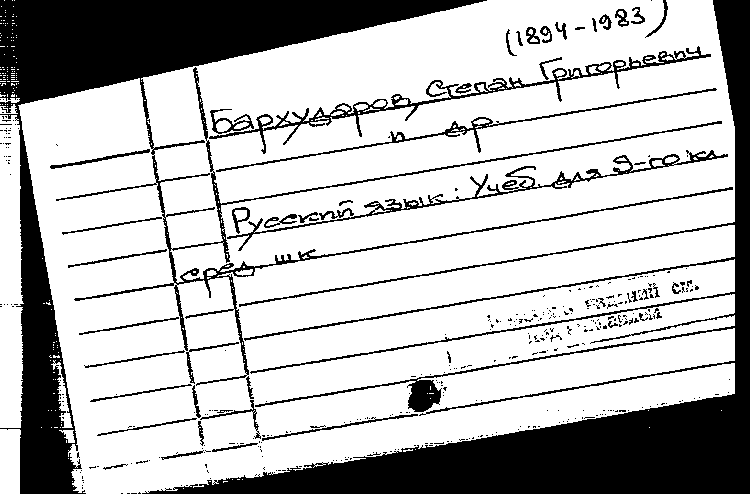 (1894-1983)
Бархударов, Степан Григорьевич
и др.
Русский язык: Учеб. для 9-го кл.
сред шк
изданий см.
под